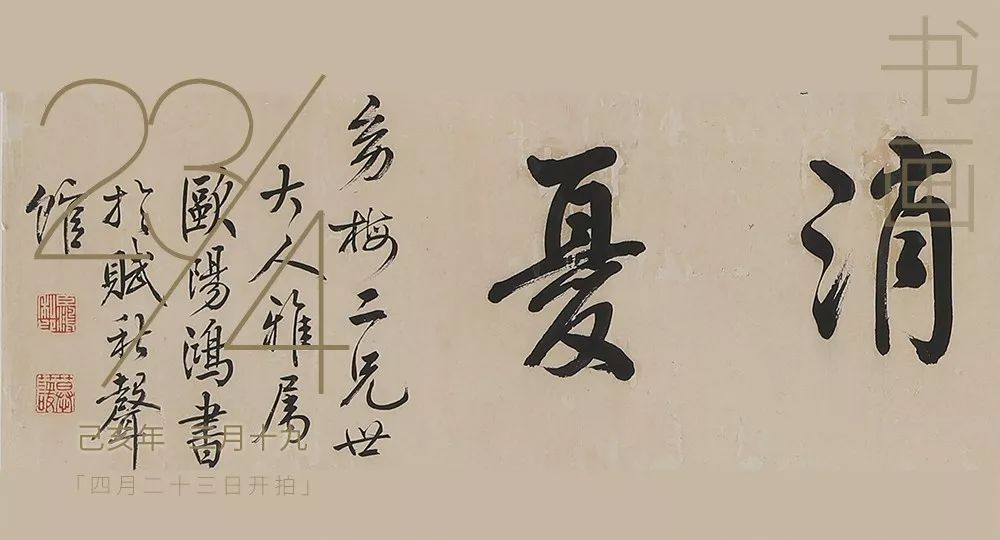 书画
消夏
梅二兄世
大人雅属
歐陽鴻書
於賦秋聲
館
23/4
己亥年 月十九
「四月二十三日开拍」